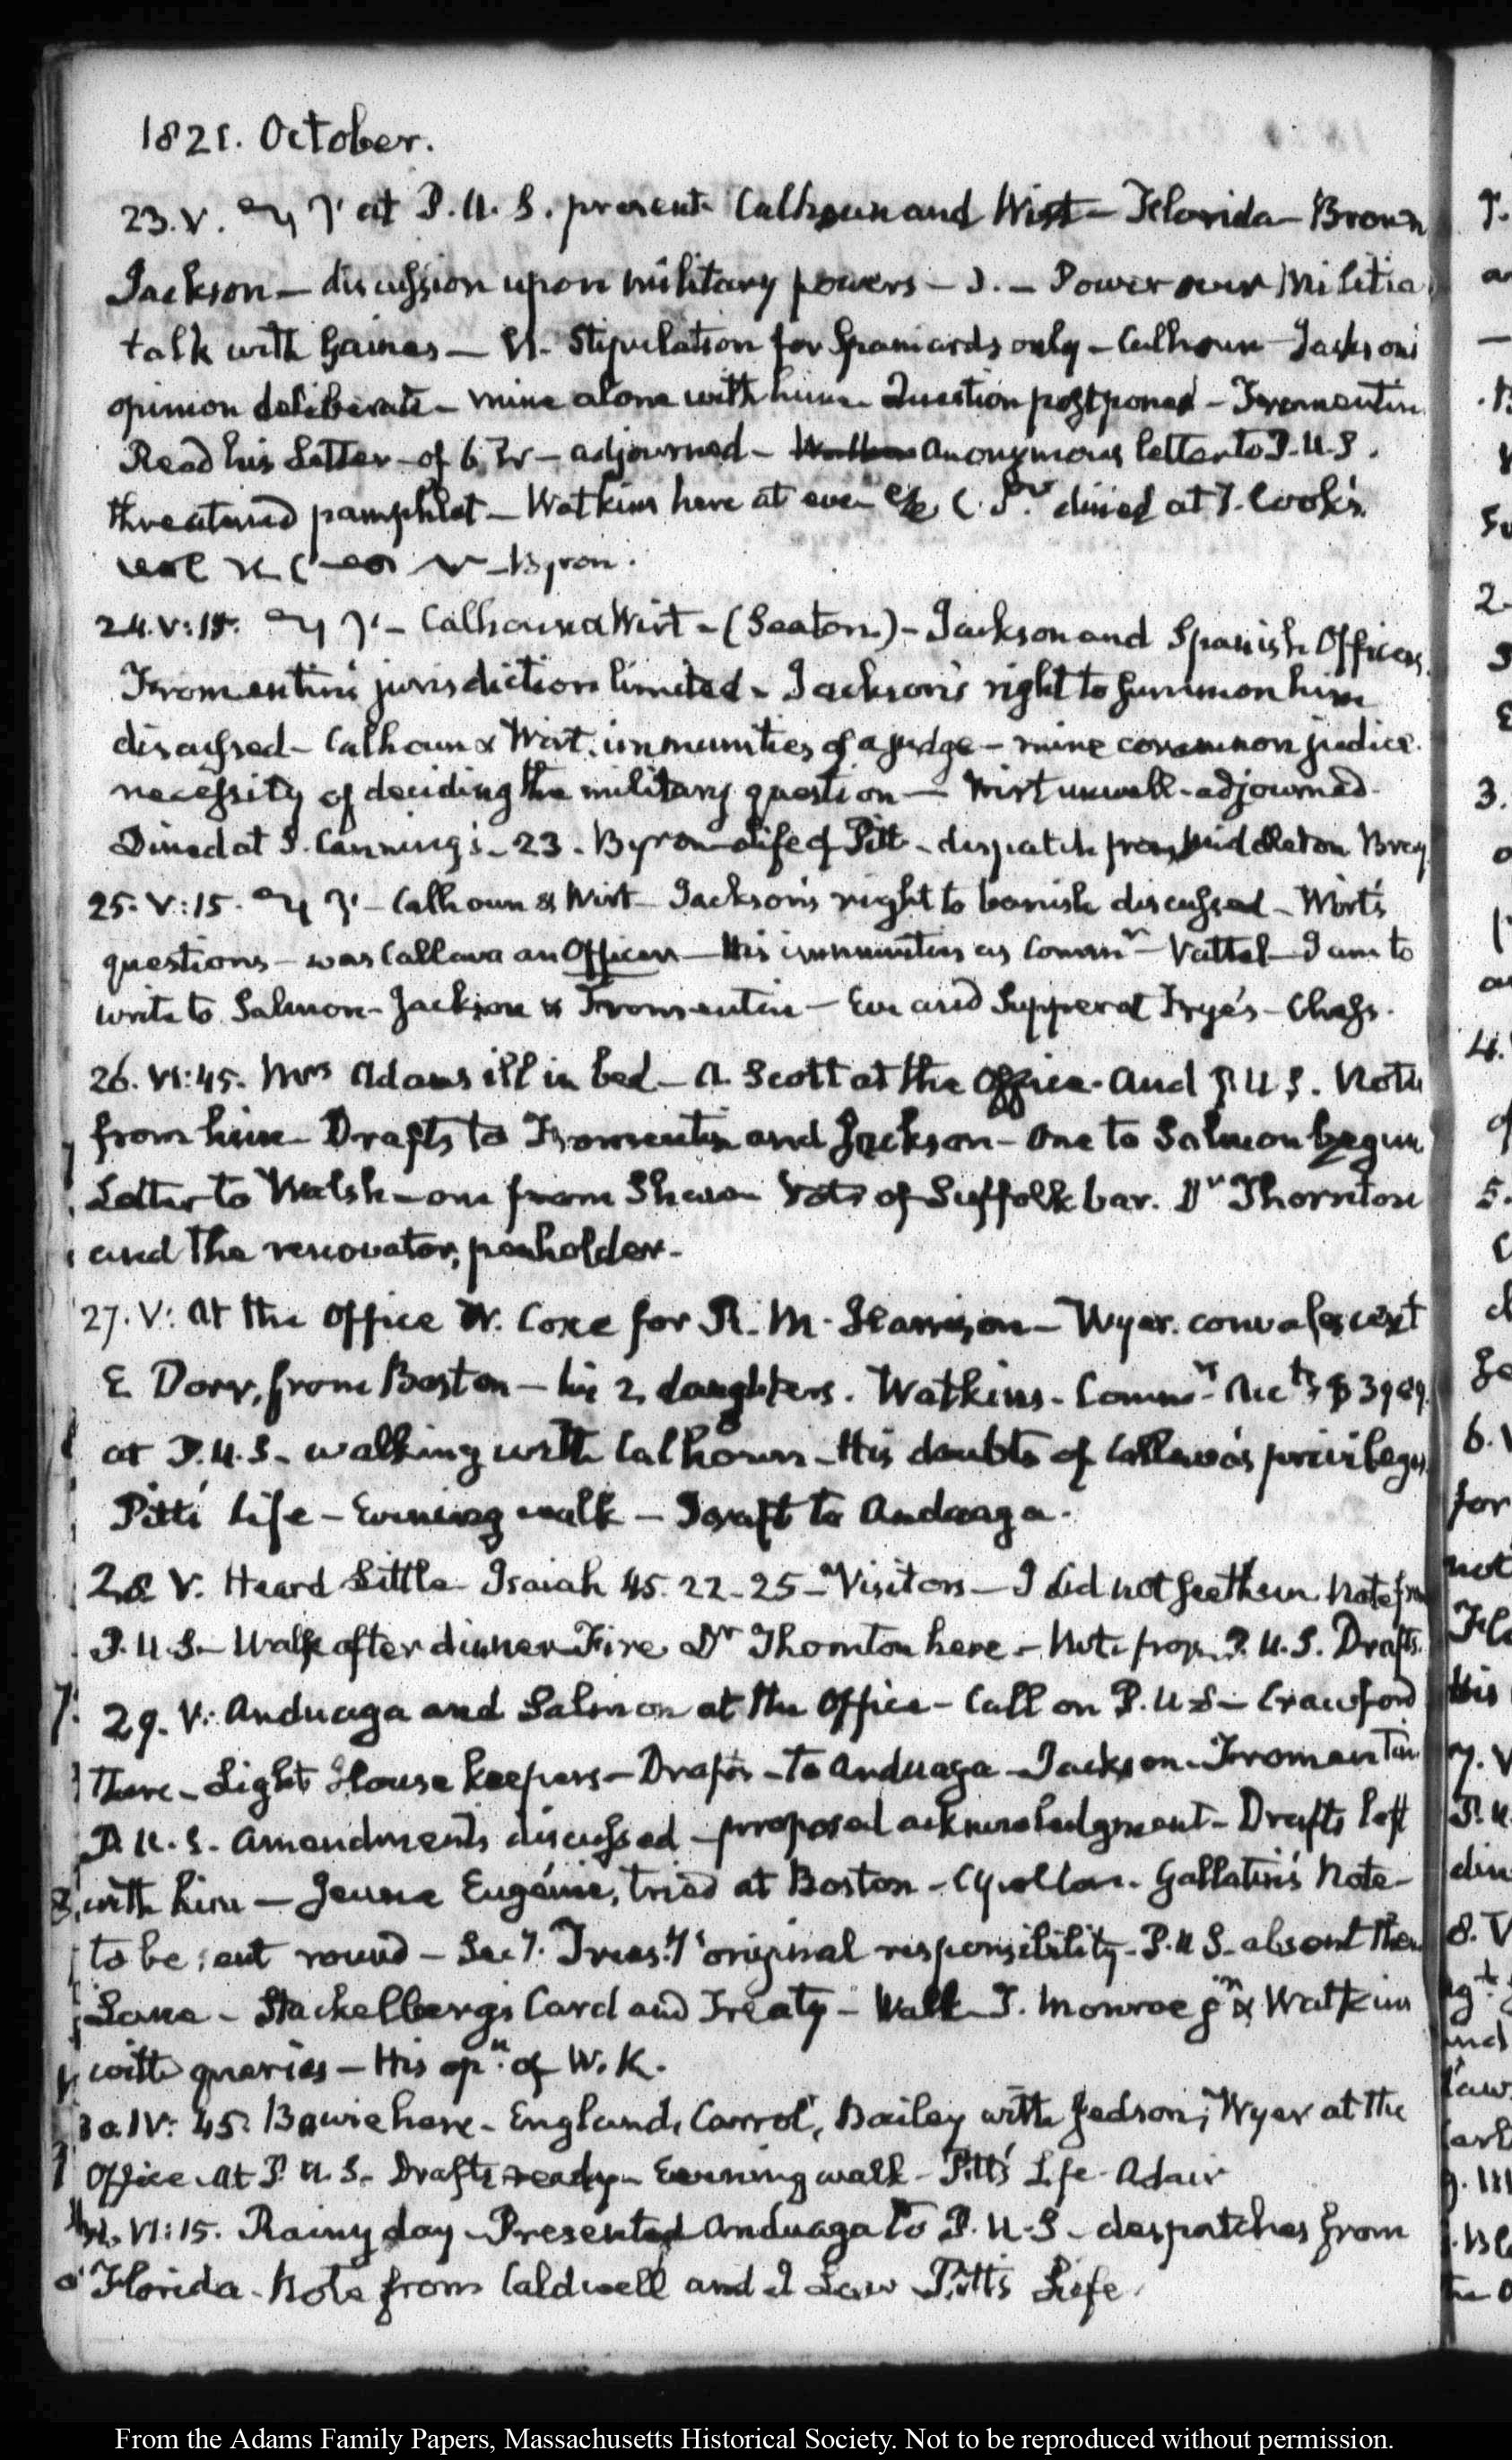 1821. October.
23. V. at P. U. S. present Calhoun and Wirt — Florida — Brown
Jackson — discussion upon military powers — J. — Power over Militia
talk with Gaines — Stipulation for Spaniards only — Calhoun Jackson's
opinion deliberate — mine alone with him — Question postponed — Fromentin
Read his Letter of 6 — adjourned — Anonymous letter to P. U. S.
threatened pamphlet — Watkins here at eve dined at J. Cook's.
Byron.
24. V:15. — Calhoun & Wirt — (Seaton) — Jackson and Spanish Officers
Fromentin's jurisdiction limited — Jackson's right to summon him
discussed — Calhoun & Wirt. immunities of a judge — mine
necessity of deciding the military question — Wirt unwell — adjourned.
Dined at S. Canning's — 23 — Byron — Life of Pitt — dispatch from Middleton
25. V:15. — Calhoun & Wirt — Jackson's right to banish discussed — Wirt's
questions — was Callava an Officer — His immunities as Commr — Vattel — I am to
write to Salmon — Jackson & Fromentin — Eve and Supper at Frye's — Chess.
26. VI:45. Mrs Adams ill in bed — A. Scott at the Office. And P. U. S. Note
from him — Drafts to Fromentin and Jackson — One to Salmon begun
Letter to Walsh — one from Shaw Vote of Suffolk bar. Dr Thornton
and the renovator, penholder —
27. V: At the Office W. Coxe for R. M. Harrison — Wyer. convalescent
E Dorr, from Boston — his 2 daughters. Watkins — Commn Accts
at P. U. S — walking with Calhoun — His doubts of Callava's privileges
Pitt's Life — Evening walk — Draft to Anduaga.
28 V. Heard Little — Isaiah 45. 22–25 — Visitors — I did not see them Note from
P. U. S — Walk after dinner Fire Dr Thornton here — Note from P. U. S. Drafts.
29. V: Anduaga and Salmon at the Office — Call on P. U S — Crawford
there — Light House keepers — Drafts — to Anduaga — Jackson — Fromentin
P. U. S. Amendments discussed — proposed acknowledgment — Drafts left
with him — Jeune Eugénie, tried at Boston — Apollon. Gallatin's Note —
to be sent round — Secy. Treasy's original responsibility — P. U S. absent then
Lane — Stackelberg's Card and Treaty — Walk J. Monroe jn & Watkins
with queries — His opn of W. K.
30. IV: 45. Bowie here — England, Carrol, Bailey with Judson; Wyer at the
Office At P. U. S. Drafts ready — Evening walk — Pitt's Life — Adair
31. VI:15. Rainy day — Presented Anduaga to P. U. S — despatches from
Florida — Note from Caldwell and I Law Pitt's Life.
From the Adams Family Papers, Massachusetts Historical Society. Not to be reproduced without permission.